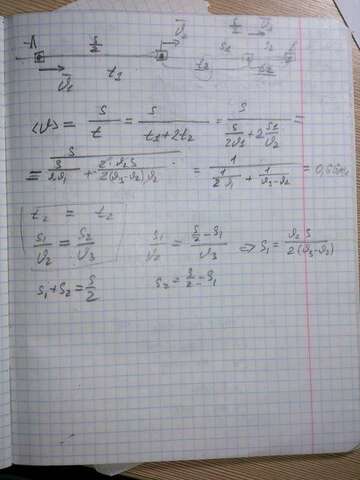 A S/2 v⃗ S/2 v⃗
v⃗₁ t₁ S₁ t₂ S₂ t₂
⟨v⟩ = S/t = S/(t₁+2t₂) = S/(S/(2v₁) + 2 S₁/v₂) =
= S/(S/(2v₁) + 2·v₂S/(2(v₃-v₂)v₂)) = 1/(1/(2v₁) + 1/(v₃-v₂)) =
t₂ = t₂
S₁/v₂ = S₂/v₃ S₁/v₂ = (S/2 - S₁)/v₃ ⇒ S₁ = v₂S/(2(v₃-v₂))
S₁+S₂ = S/2 S₂ = S/2 - S₁